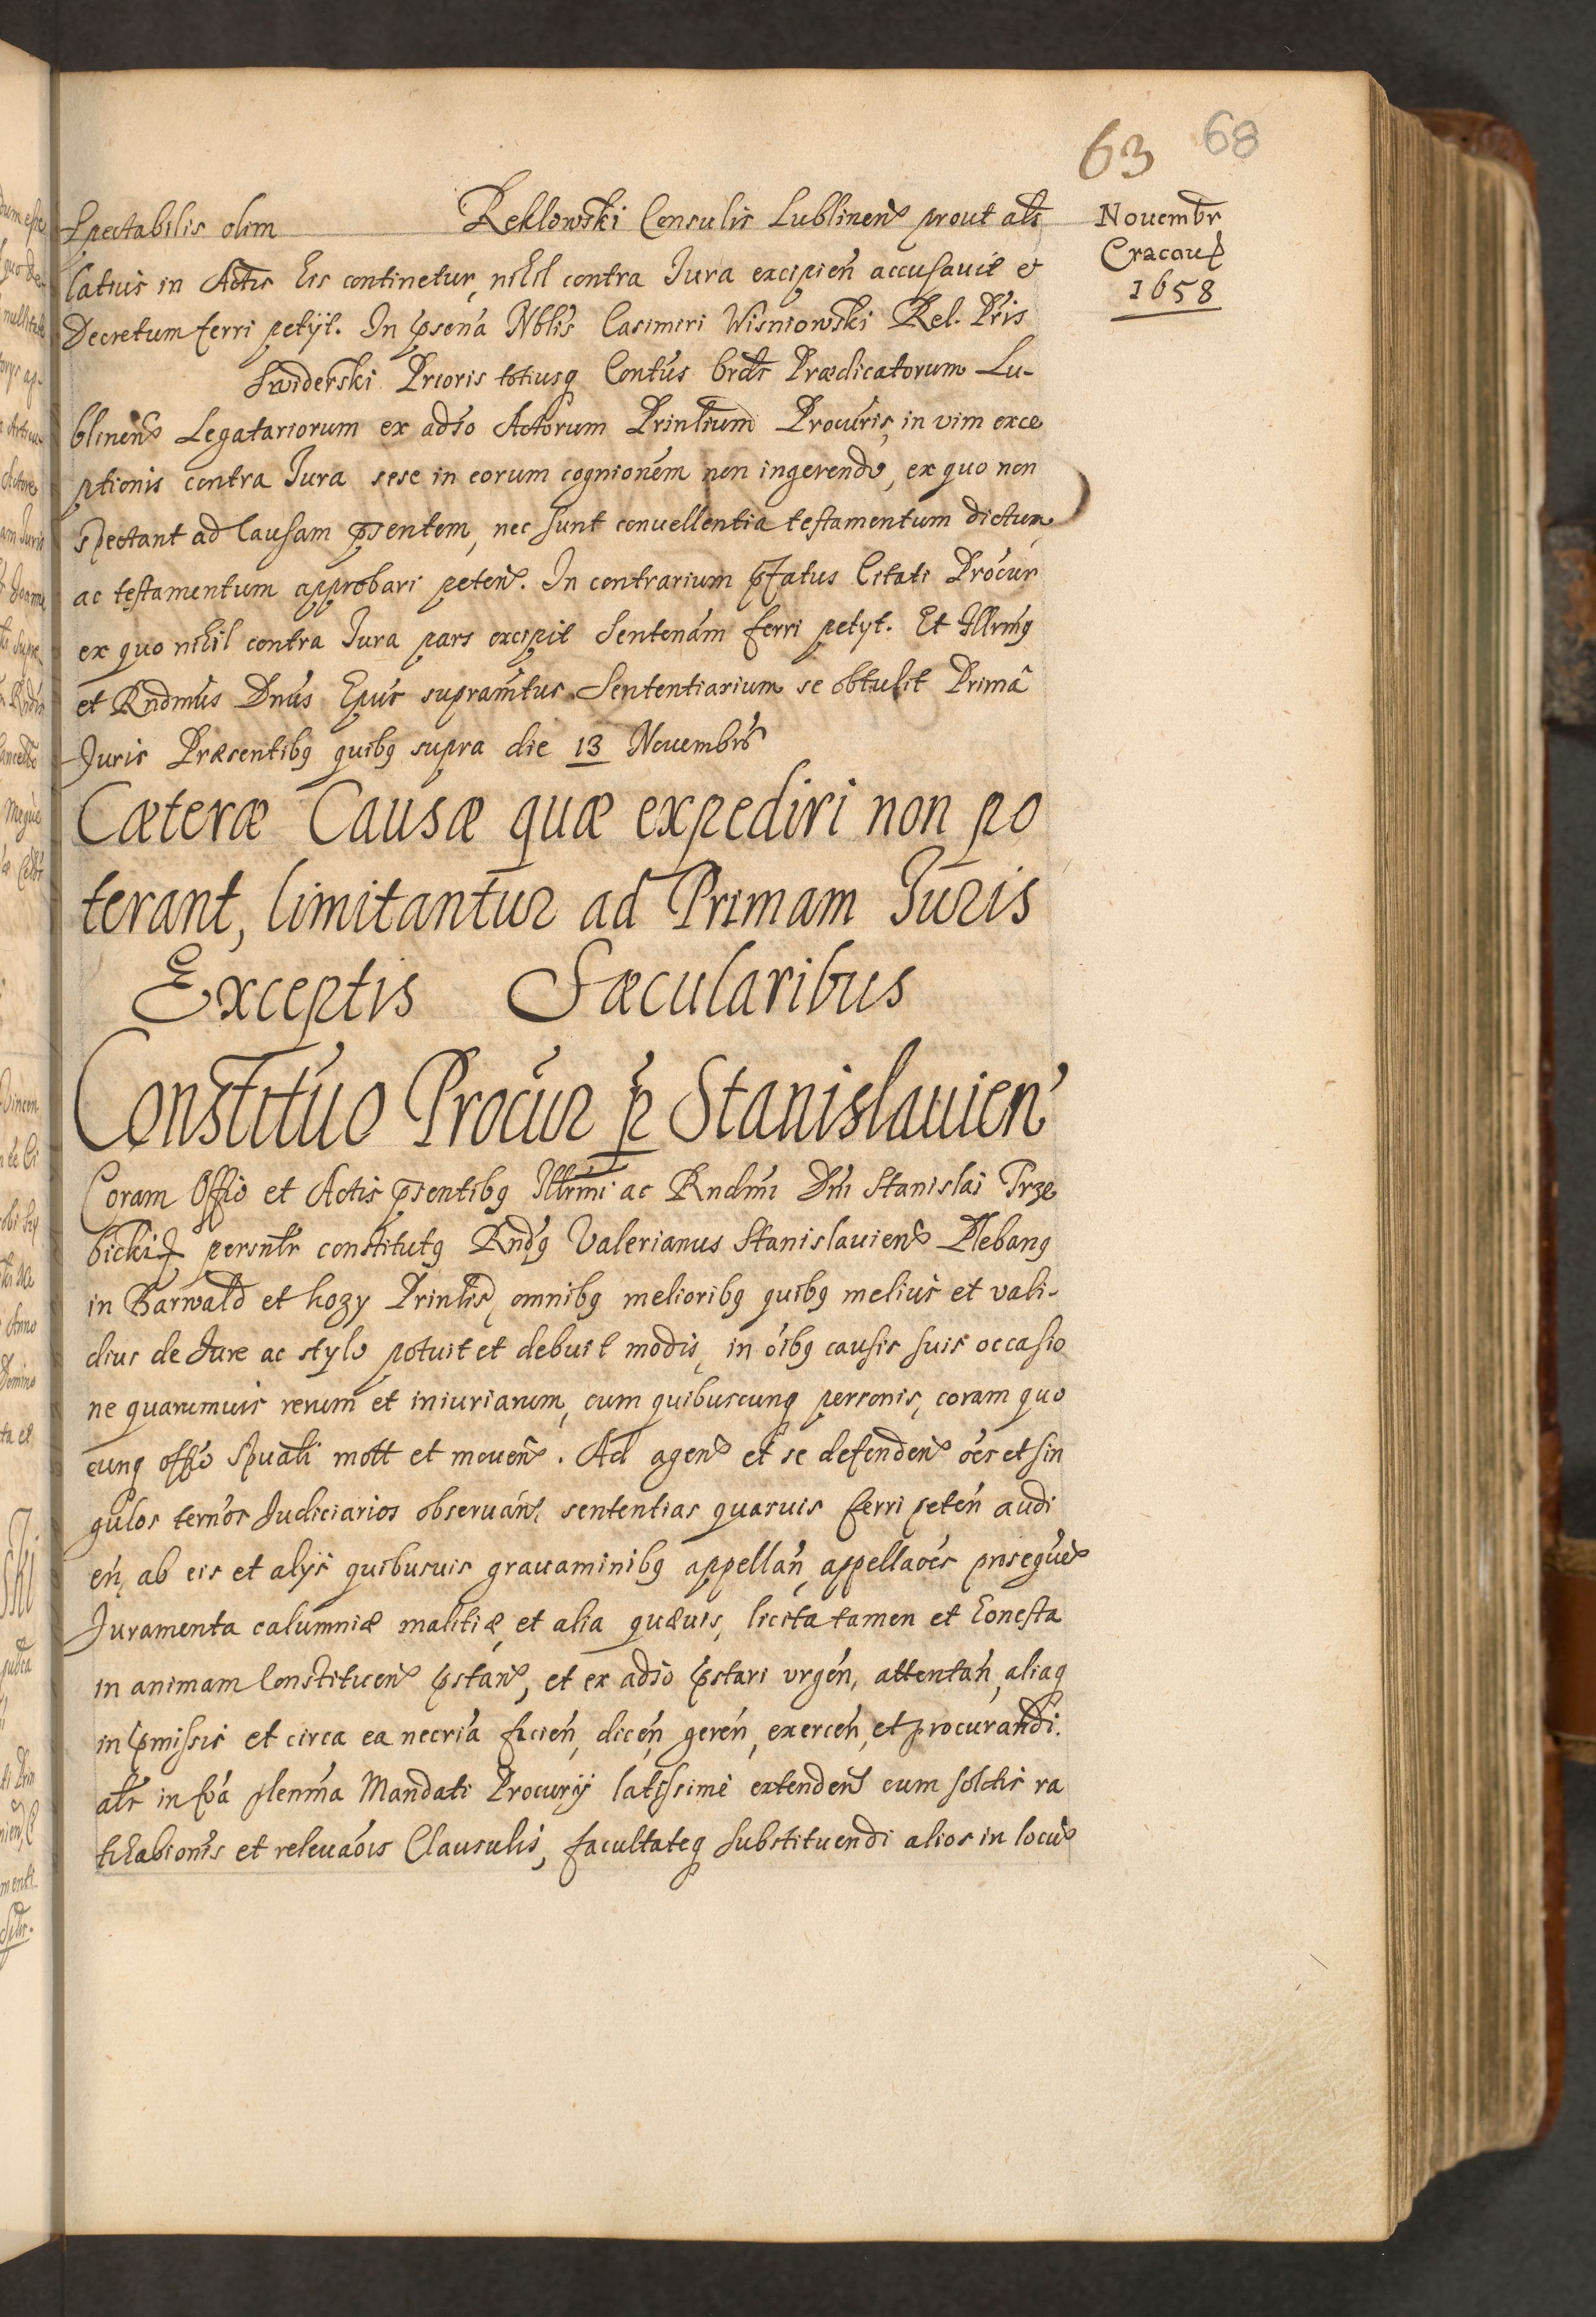 63 68
Novembr
Cracouien
1658
Spectabilis olim Reklowski Consulis Lublinen prout als
latius in Actis his continetur, nihil contra Jura excipien accusauit et
Decretum ferri petijt. In psena Nblis Casimiri Wisniowski Rel. Pris
Swiderski Prioris totiusq Contus brdts Prædicatorum Lu-
blinens Legatariorum ex adso Actorum Prinlium Procuris, in vim exce
ptionis contra Jura sese in eorum cognionem non ingerendo, ex quo non
spectant ad Causam psentem, nec sunt conuellentia testamentum dictum,
ac testamentum approbari peten. In contrarium pfatus Citati Procur
ex quo nihil contra Jura pars excipit Sentenam ferri petyt. Et Illrmq
et Rndmus Dnus Epus supramtus Sententiarium se obtulit Primâ
Juris Præsentibq quibq supra die 13 Nouembris
Cæteræ Causæ quæ expediri non po
terant, limitantur ad Primam Juris
Exceptis Sæcularibus
Constituo Procur pr Stanislauien
Coram Offio et Actis psentibq Illrmi ac Rndmi Dni Stanislai Trze
bicki personlr constitutq Rndq Valerianus Stanislauiens Plebanq
in Barwald et hozy Prinlis, omnibq melioribq quibq melius et vali-
dius de Jure ac stylo potuit et debuit modis, in oibq causis suis occasio
ne quarumuis rerum et iniuriarum, cum quibuscunq personis, coram quo
cunq offo spuali mott et mouen. Ad agen et se defenden oes et sin
gulos ternos Judiciarios obseruant sententias quasuis ferri peten audi
en, ab eis et alijs quibusuis grauaminibq appellan, appellaoes prosequen
Juramenta calumniæ malitiæ, et alia quæuis, licita tamen et honesta
in animam Constituen pstan, et ex adso pstari vrgen, attentan, aliaq
in pmissis et circa ea necria facien, dicen, geren, exercen, et procurandi.
als in fva plenma Mandati Procurij latissime extenden cum solitis ra
tihabionis et releuaois Clausulis, facultateq substituendi alios in locu